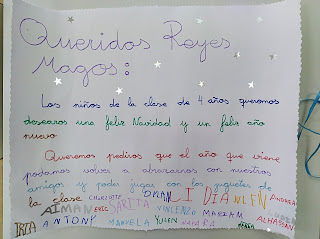 Queridos Reyes
Magos:
Los niños de la clase de 4 años queremos
desearos una feliz Navidad y un feliz año
nuevo.
Queremos pediros que el año que viene
podamos volver a abrazarnos con nuestros
amigos y poder jugar con los juguetes de
la clase CHARLOTE OMAN LIDIA NLEN ANDREA
AIMAN ERIC SARITA VINCENZO MARIAM ALHASSAN
IRIA ANTONY MANUELA YULEN NAHARA